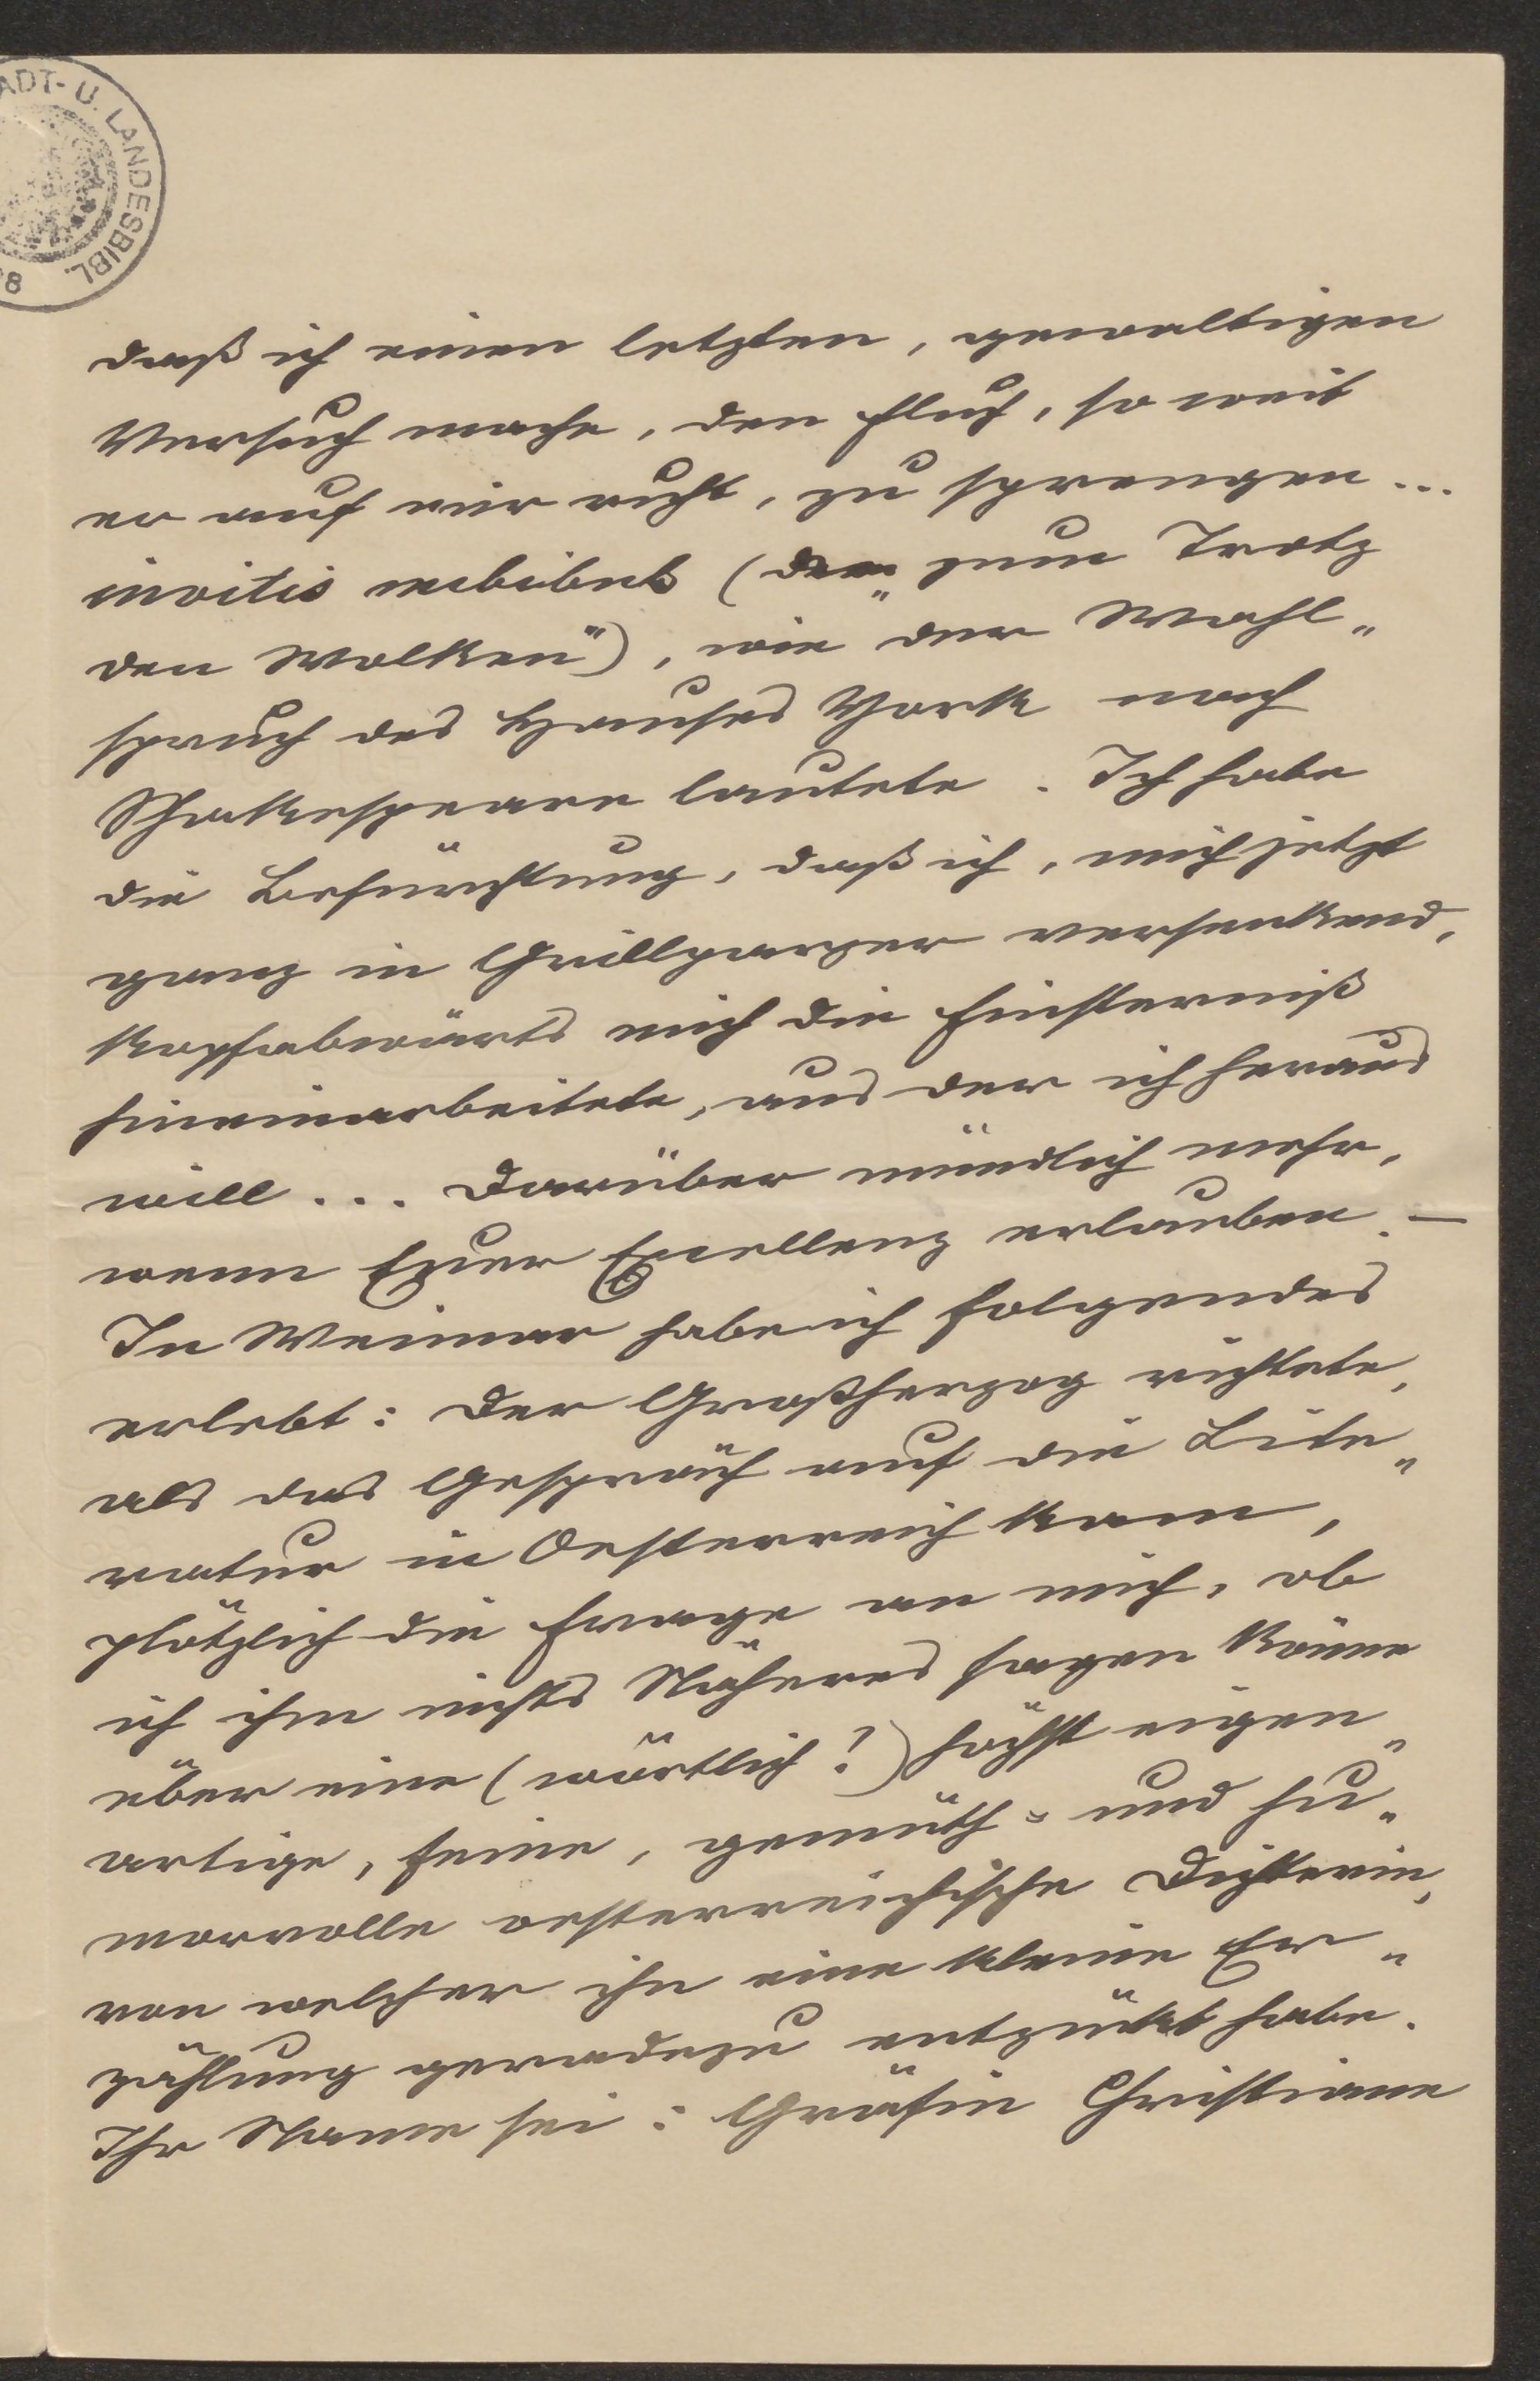 ADT- U. LANDESBIBL.
8
daß ich einen letzten, gewaltigen
Versuch mache, den Fluch, so weit
er auf mir ruht, zu sprengen...
invitis nubibus („zum Trotz
den Wolken"), wie der Wahl-
spruch des Hauses York nach
Shakespeare lautete. Ich habe
die Befürchtung, daß ich, mich jetzt
ganz in Grillparzer versenkend,
kopfabwärts mich die Finsterniß
hineinarbeitete, aus der ich heraus
will... Darüber mündlich mehr,
wenn Euer Excellenz erlauben. —
In Weimar habe ich folgendes
erlebt: Der Großherzog richtete,
als das Gespräch auf die Lite-
ratur in Oesterreich kam,
plötzlich die Frage an mich, ob
ich ihm nichts Näheres sagen könne
über eine (wörtlich!) höchst eigen-
artige, feine, gemüth- und hu-
morvolle oesterreichische Dichterin,
von welcher ihn eine kleine Er-
zählung geradezu entzückt habe.
Ihr Name sei: Gräfin Christiane